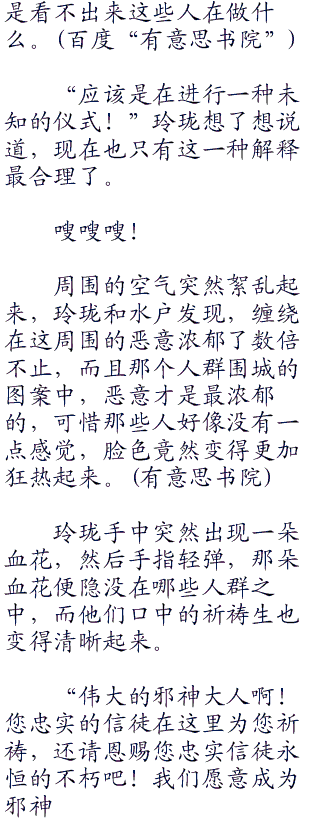 是看不出来这些人在做什
么。(百度“有意思书院”)
“应该是在进行一种未
知的仪式！”玲珑想了想说
道，现在也只有这一种解释
最合理了。
嗖嗖嗖！
周围的空气突然絮乱起
来，玲珑和水户发现，缠绕
在这周围的恶意浓郁了数倍
不止，而且那个人群围城的
图案中，恶意才是最浓郁
的，可惜那些人好像没有一
点感觉，脸色竟然变得更加
狂热起来。(有意思书院)
玲珑手中突然出现一朵
血花，然后手指轻弹，那朵
血花便隐没在哪些人群之
中，而他们口中的祈祷生也
变得清晰起来。
“伟大的邪神大人啊！
您忠实的信徒在这里为您祈
祷，还请恩赐您忠实信徒永
恒的不朽吧！我们愿意成为
邪神